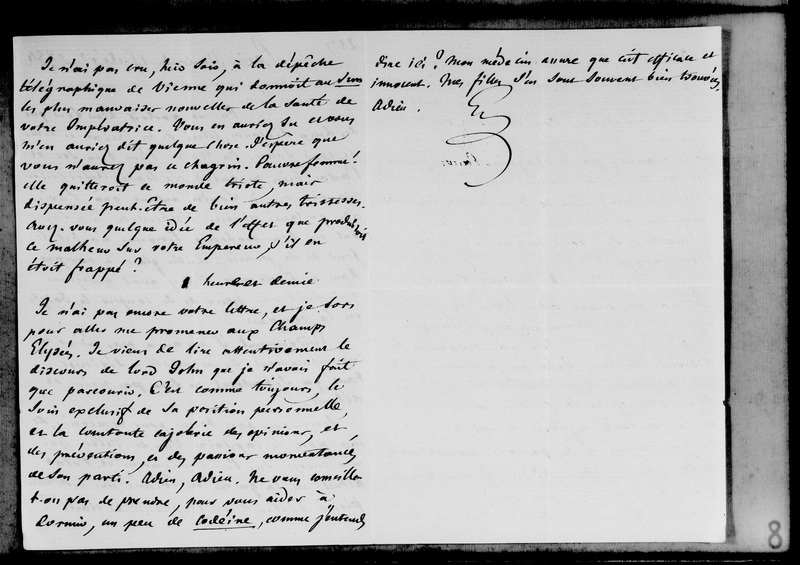 Je n'ai pas cru, hier soir, à la dépêche
télégraphique de Vienne qui donnoit au Sun
les plus mauvaises nouvelles de la santé de
votre Impératrice. Vous en auriez su et vous
m'en auriez dit quelque chose. J'espère que
vous n'aurez pas ce chagrin. Pauvre femme !
elle quitteroit ce monde triste, mais
dispensée peut-être de bien autres tristesses.
Avez-vous quelque idée de l'effet que produiroit
ce malheur sur votre Empereur, s'il en
étoit frappé ?
heures et demie
Je n'ai pas encore votre lettre, et je sors
pour aller me promener aux Champs
Elysées. Je viens de lire attentivement le
discours de lord John que je n'avais fait
que parcourir. C'est comme toujours, le
soin exclusif de sa position personnelle,
et la constante cajolerie des opinions, et
des préventions, et des passions momentanées
de son parti. Adieu, Adieu. Ne vous conseille
t-on pas de prendre, pour vous aider à
dormir, un peu de codéine, comme j'entends
dire ici ? Mon médecin assure que c'est efficace et
innocent. Mes filles s'en sont souvent bien trouvées.
Adieu.
G
8